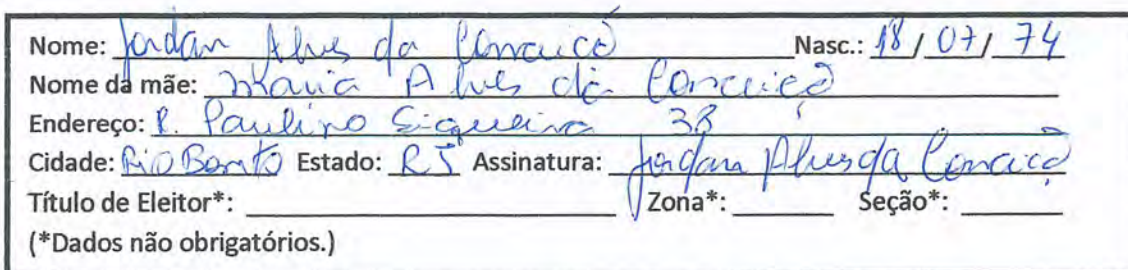 Nome: Jordan Alves da Conceicò Nasc.: 18 / 07 / 74
Nome da mãe: Maria Alves da Conceicò
Endereço: R. Paulino Siqueira 38
Cidade: Rio Bonito Estado: RJ Assinatura: Jordan Alves da Conceicò
Título de Eleitor*: Zona*: Seção*:
(*Dados não obrigatórios.)